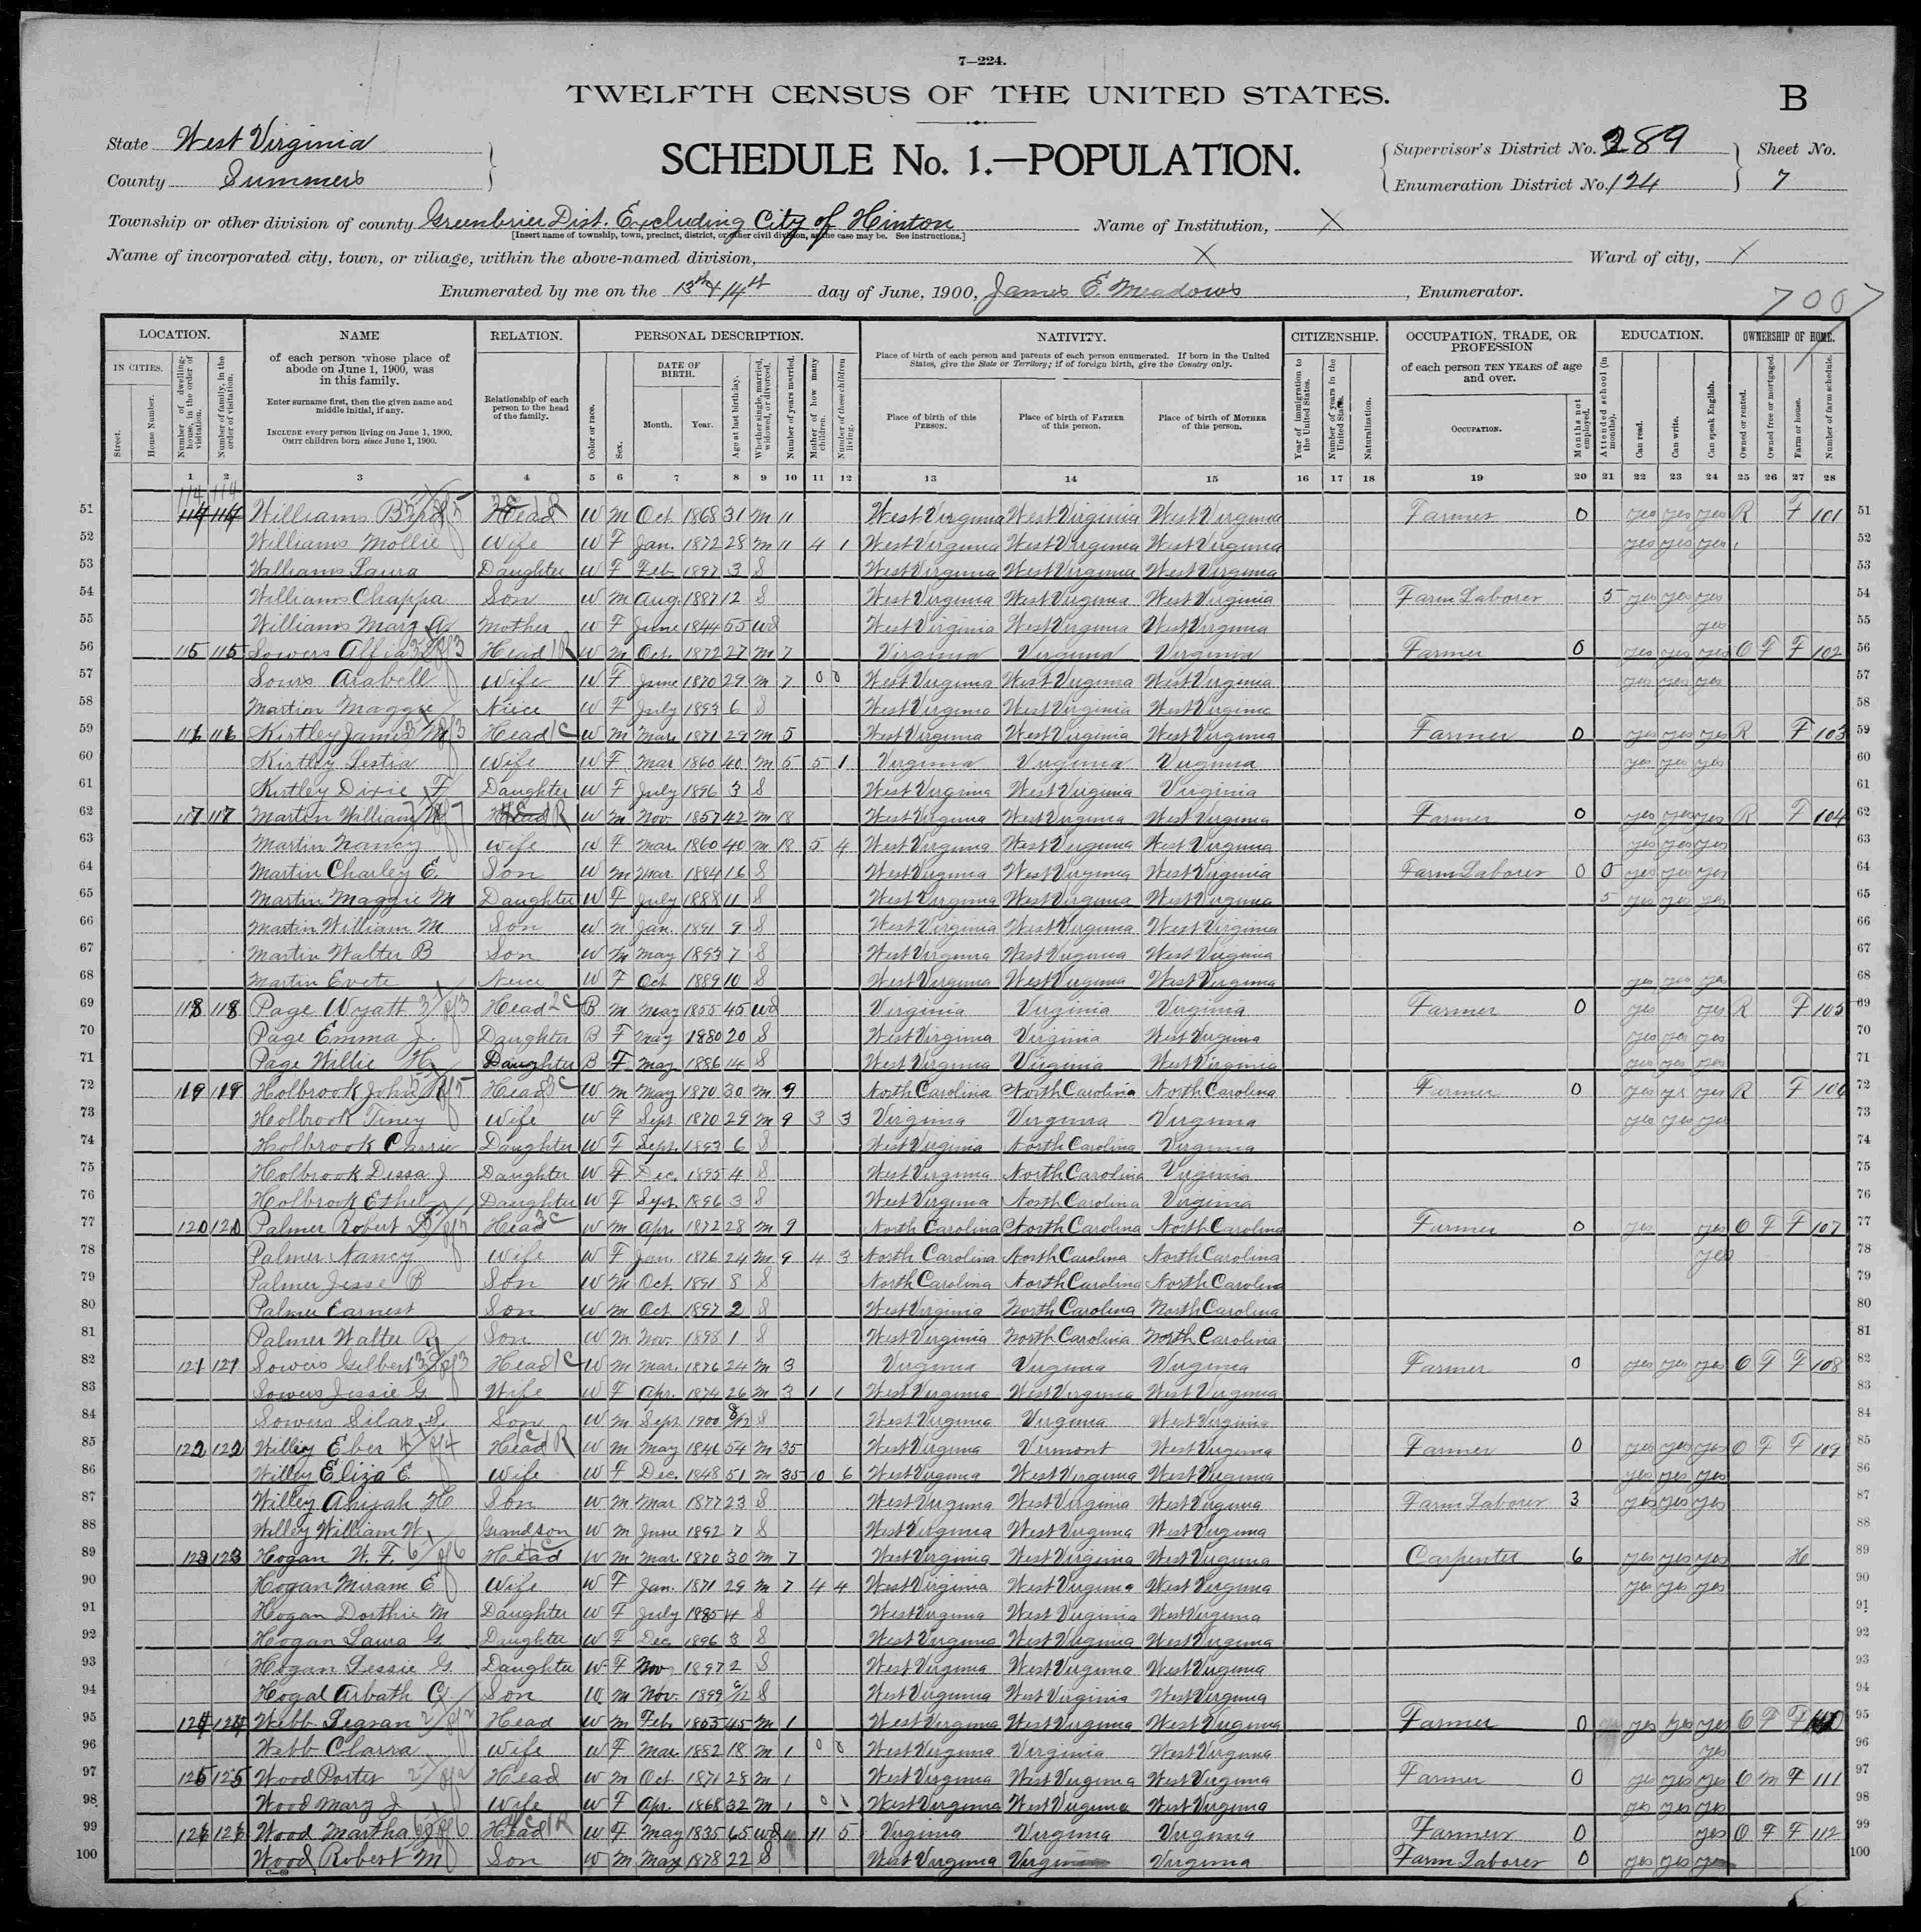 7—224.
TWELFTH CENSUS OF THE UNITED STATES.
B
State West Virginia
County Summers
SCHEDULE No. 1.—POPULATION.
Supervisor's District No. 289
Enumeration District No. 124
Sheet No.
7
Township or other division of county Greenbrier Dist. Excluding City of Hinton
[Insert name of township, town, precinct, district, or other civil division, as the case may be. See instructions.]
Name of Institution, X
Name of incorporated city, town, or village, within the above-named division, X
Ward of city, X
Enumerated by me on the 13th & 14th day of June, 1900, James E. Meadows, Enumerator.
LOCATION. NAME RELATION. PERSONAL DESCRIPTION. NATIVITY. CITIZENSHIP. OCCUPATION, TRADE, OR PROFESSION EDUCATION. OWNERSHIP OF HOME.
IN CITIES.
Street.
House Number.
Number of dwelling-house, in the order of visitation.
Number of family, in the order of visitation.
of each person whose place of abode on June 1, 1900, was in this family.
Enter surname first, then the given name and middle initial, if any.
INCLUDE every person living on June 1, 1900.
OMIT children born since June 1, 1900.
Relationship of each person to the head of the family.
Color or race.
Sex.
DATE OF BIRTH.
Month.
Year.
Age at last birthday.
Whether single, married, widowed, or divorced.
Number of years married.
Mother of how many children.
Number of these children living.
Place of birth of each person and parents of each person enumerated. If born in the United States, give the State or Territory; if of foreign birth, give the Country only.
Place of birth of this PERSON.
Place of birth of FATHER of this person.
Place of birth of MOTHER of this person.
Year of immigration to the United States.
Number of years in the United States.
Naturalization.
of each person TEN YEARS of age and over.
OCCUPATION.
Months not employed.
Attended school (in months).
Can read.
Can write.
Can speak English.
Owned or rented.
Owned free or mortgaged.
Farm or house.
Number of farm schedule.
1 2 3 4 5 6 7 8 9 10 11 12 13 14 15 16 17 18 19 20 21 22 23 24 25 26 27 28
51 114 114 Williams Head W M Oct. 1868 31 M 11 West Virginia West Virginia West Virginia Farmer 0 yes yes yes R F 101 51
52 Williams Mollie Wife W F Jan. 1872 28 M 11 4 1 West Virginia West Virginia West Virginia yes yes yes 52
53 Williams Laura Daughter W F Feb 1897 3 S West Virginia West Virginia West Virginia 53
54 Williams Chappa Son W M Aug. 1887 12 S West Virginia West Virginia West Virginia Farm Laborer 5 yes yes yes 54
55 Williams Mary A Mother W F June 1844 55 Wd West Virginia West Virginia West Virginia yes 55
56 115 115 Sowers Head W M Oct. 1872 27 M 7 Virginia Virginia Virginia Farmer 0 yes yes yes O F F 102 56
57 Sours Arabell Wife W F June 1870 29 M 7 0 0 West Virginia West Virginia West Virginia yes yes yes 57
58 Martin Maggie Niece W F July 1893 6 S West Virginia West Virginia West Virginia 58
59 116 116 Kirtley James M Head W M Mar. 1871 29 M 5 West Virginia West Virginia West Virginia Farmer 0 yes yes yes R F 103 59
60 Kirtley Lestia Wife W F Mar 1860 40 M 5 5 1 Virginia Virginia Virginia yes yes yes 60
61 Kirtley Dixie F Daughter W F July 1896 3 S West Virginia West Virginia Virginia 61
62 117 117 Martin William Head W M Nov. 1857 42 M 18 West Virginia West Virginia West Virginia Farmer 0 yes yes yes R F 104 62
63 Martin Nancy Wife W F Mar. 1860 40 M 18 5 4 West Virginia West Virginia West Virginia yes yes yes 63
64 Martin Charley E. Son W M Mar. 1884 16 S West Virginia West Virginia West Virginia Farm Laborer 0 0 yes yes yes 64
65 Martin Maggie M Daughter W F July 1888 11 S West Virginia West Virginia West Virginia 5 yes yes yes 65
66 Martin William M Son W M Jan. 1891 9 S West Virginia West Virginia West Virginia 66
67 Martin Walter B Son W M May 1893 7 S West Virginia West Virginia West Virginia 67
68 Martin Evete Niece W F Oct 1889 10 S West Virginia West Virginia West Virginia yes yes yes 68
69 118 118 Page Wyatt Head B M May 1855 45 Wd Virginia Virginia Virginia Farmer 0 yes yes R F 105 69
70 Page Emma J. Daughter B F May 1880 20 S West Virginia Virginia West Virginia yes yes yes 70
71 Page Willie H Daughter B F May 1886 14 S West Virginia Virginia West Virginia yes yes yes 71
72 119 119 Holbrook John Head W M May 1870 30 M 9 North Carolina North Carolina North Carolina Farmer 0 yes yes yes R F 106 72
73 Holbrook Tiney Wife W F Sept. 1870 29 M 9 3 3 Virginia Virginia Virginia yes yes yes 73
74 Holbrook Carrie Daughter W F Sept. 1893 6 S West Virginia North Carolina Virginia 74
75 Holbrook Dessa J Daughter W F Dec. 1895 4 S West Virginia North Carolina Virginia 75
76 Holbrook Ethel Daughter W F Sept. 1896 3 S West Virginia North Carolina Virginia 76
77 120 120 Palmer Robert Head W M Apr. 1872 28 M 9 North Carolina North Carolina North Carolina Farmer 0 yes yes O F F 107 77
78 Palmer Nancy Wife W F Jan. 1876 24 M 9 4 3 North Carolina North Carolina North Carolina yes 78
79 Palmer Jesse B Son W M Oct. 1891 8 S North Carolina North Carolina North Carolina 79
80 Palmer Earnest Son W M Oct 1897 2 S West Virginia North Carolina North Carolina 80
81 Palmer Walter R Son W M Nov. 1898 1 S West Virginia North Carolina North Carolina 81
82 121 121 Sowers Gilbert Head W M Mar. 1876 24 M 3 Virginia Virginia Virginia Farmer 0 yes yes yes O F F 108 82
83 Sowers Jessie G Wife W F Apr. 1874 26 M 3 1 1 West Virginia West Virginia West Virginia 83
84 Sowers Silas S. Son W M Sept 1900 8/12 S West Virginia Virginia West Virginia 84
85 122 122 Willey Eber Head W M May 1846 54 M 35 West Virginia Vermont West Virginia Farmer 0 yes yes yes O F F 109 85
86 Willey Eliza E. Wife W F Dec. 1848 51 M 35 10 6 West Virginia West Virginia West Virginia yes yes yes 86
87 Willey Ahijah H Son W M Mar 1877 23 S West Virginia West Virginia West Virginia Farm Laborer 3 yes yes yes 87
88 Willey William W. Grandson W M June 1892 7 S West Virginia West Virginia West Virginia 88
89 123 123 Hogan W. F. Head W M Mar. 1870 30 M 7 West Virginia West Virginia West Virginia Carpenter 6 yes yes yes H 89
90 Hogan Miram E Wife W F Jan. 1871 29 M 7 4 4 West Virginia West Virginia West Virginia yes yes yes 90
91 Hogan Dorthie M Daughter W F July 1895 4 S West Virginia West Virginia West Virginia 91
92 Hogan Laura G. Daughter W F Dec 1896 3 S West Virginia West Virginia West Virginia 92
93 Hogan Lessie G. Daughter W F Nov 1897 2 S West Virginia West Virginia West Virginia 93
94 Hogal Arbath C Son W M Nov. 1899 6/12 S West Virginia West Virginia West Virginia 94
95 124 124 Webb Head W M Feb 45 M 1 West Virginia West Virginia West Virginia Farmer 0 yes yes yes O F F 110 95
96 Webb Clarra Wife W F Mar. 1882 18 M 1 0 0 West Virginia Virginia West Virginia yes 96
97 125 125 Wood Porter Head W M Oct 1871 28 M 1 West Virginia West Virginia West Virginia Farmer 0 yes yes yes O M F 111 97
98 Wood Mary J Wife W F Apr. 1868 32 M 1 0 West Virginia West Virginia West Virginia yes yes yes 98
99 126 126 Wood Martha Head W F May 1835 65 Wd 11 5 Virginia Virginia Virginia Farmer 0 yes O F F 112 99
100 Wood Robert M Son W M May 1878 22 S West Virginia Virginia Virginia Farm Laborer 0 yes yes yes 100